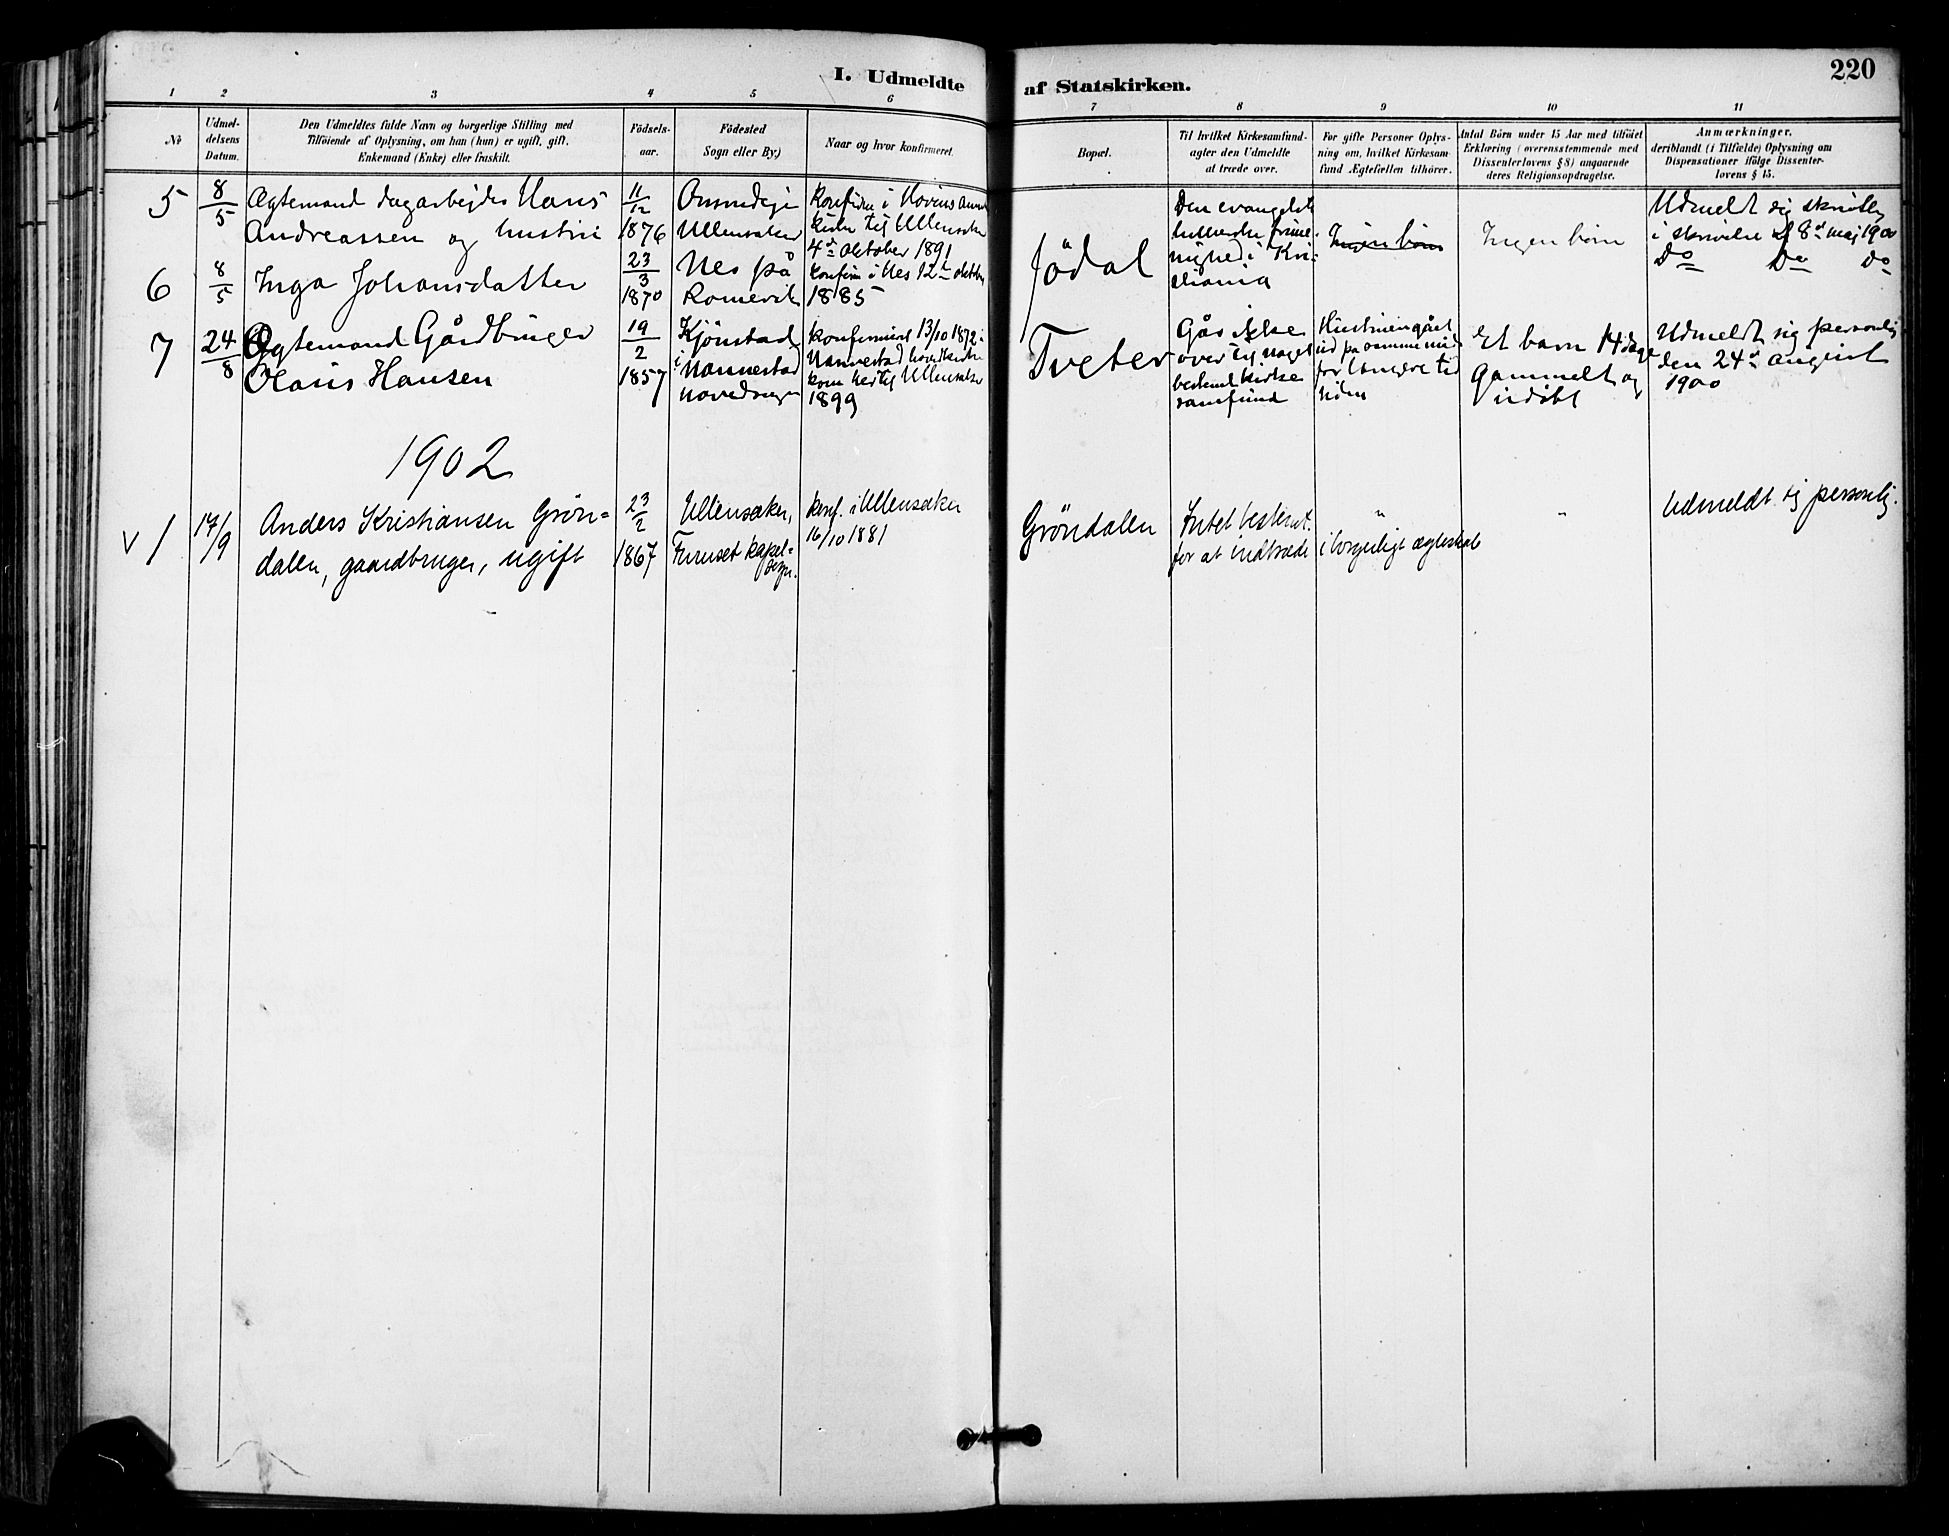 I. Udmeldte af Statskirken.
220
1 2 3 4 5 6 7 8 9 10 11
No
Udmel-
delsens
Datum.
Den Udmeldtes fulde Navn og borgerlige Stilling med
Tilföiende af Oplysning, om han (hun) er ugift, gift,
Enkemand (Enke) eller fraskilt.
Födsels-
aar.
Födested
Sogn eller By.)
Naar og hvor konfirmeret.
Bopæl.
Til hvilket Kirkesamfund-
agter den Udmeldte
at træde over.
For gifte Personer Oplys-
ning om, hvilket Kirkesam-
fund Ægtefællen tilhörer.
Antal Börn under 15 Aar med tilföiet
Erklæring (overensstemmende med
Dissenterlovens § 8) angaaende
deres Religionsopdragelse.
Anmærkninger,
deriblandt (i Tilfælde) Oplysning om
Dispensationer ifölge Dissenter-
lovens § 15.
5
8/5
Ægtemand dagarbejder Hans
Andreassen og hustru
11/12
1876
Ullensaker
Konfirm i Hovins
kirke til Ullensaker
4de Oktober 1891
Jödal
Den evangelisk
lutherske frime-
nighed i Kri-
stiania
Ingen börn
Ingen börn
Udmeldt sig skriftlig
i skrivelse af 8de maj 1900
6
8/5
Inga Johansdatter
23/3
1870
Nes på
Romerike
konfirm i Nes 12te oktober
1885
Do Do Do
7
24/8
Ægtemand Gårdbruger
Olaus Hansen
19/2
1857
Kjönstad
i Nannestad
hovedsogn
konfirmeret 13/10 1872 i
Nannestad hovedkirke
kom her til Ullensaker
1899
Tveter
Gås ikke
over til noget
bestemt kirke
samfund
Hustruen gået
ud på samme måde
for længere tid
siden
Et barn 14 dage
gammelt og
udöbt
Udmeldt sig personlig
den 24de august
1900
1902
v 1
17/9
Anders Kristiansen Grön=
dalen, gaardbruger, ugift
23/2
1867
Ullensaker,
Furuset kapel=
sogn.
konf. i Ullensaker
16/10 1881
Gröndalen
Intet bestemt.
for at indtræde i borgerligt ægteskab
"
"
Udmeldt sig personlig.